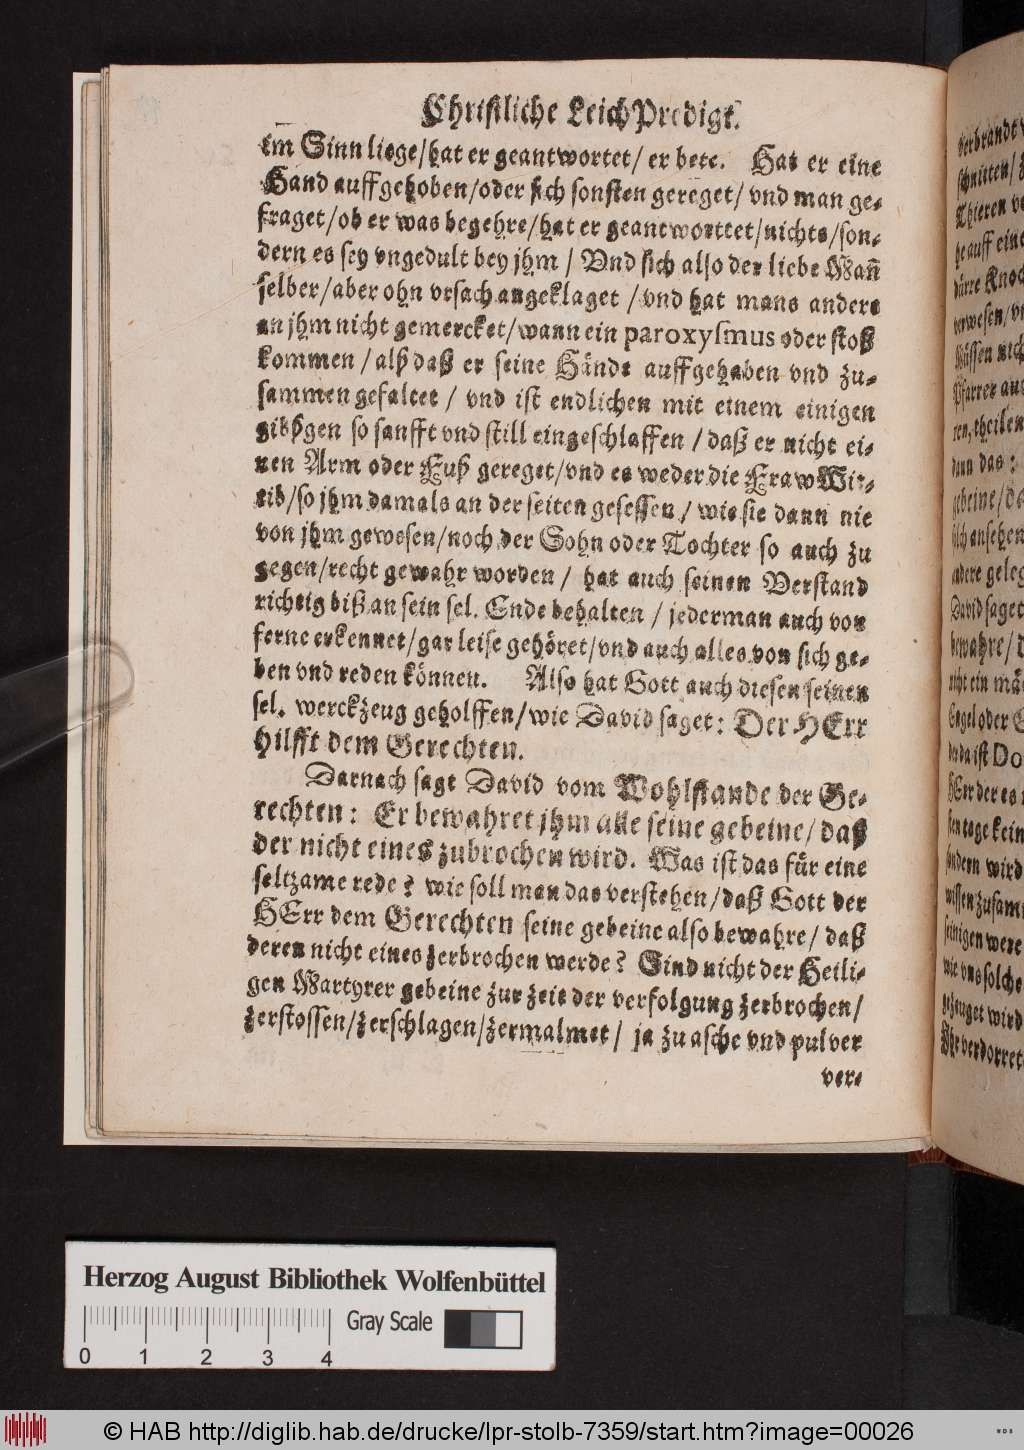 Christliche LeichPredigt.
im Sinn liege/hat er geantwortet/ er bete. Hat er eine
Hand auffgehoben/oder sich sonsten gereget/ vnd man ge-
fraget/ob er was begehre/hat er geantworttet/nichts/son-
dern es sey vngedult bey jhm / Vnd sich also der liebe Mañ
selber/aber ohn vrsach angeklaget /vnd hat mans anders
an jhm nicht gemercket/wann ein paroxysmus oder stoß
kommen / alß daß er seine Hände auffgehaben vnd zu-
sammen gefaltet / vnd ist endlichen mit einem einigen
gibßgen so sanfft vnd still eingeschlaffen / daß er nicht ei-
nen Arm oder Fuß gereget/vnd es weder die Fraw Wit-
tib/so jhm damals an der seiten gesessen / wie sie dann nie
von jhm gewesen/noch der Sohn oder Tochter so auch zu
gegen/recht gewahr worden / hat auch seinen Verstand
richtig biß an sein sel. Ende behalten / jederman auch von
ferne erkennet/gar leise gehöret/vnd auch alles von sich ge-
ben vnd reden können. Also hat Gott auch diesen seinen
sel. werckzeug geholffen/wie David saget: Der HErr
hilfft dem Gerechten.
Darnach sagt David vom Wohlstande der Ge-
rechten: Er bewahret jhm alle seine gebeine/ daß
der nicht eines zubrochen wird. Was ist das für eine
seltzame rede? wie soll man das verstehen/daß Gott der
HErr dem Gerechten seine gebeine also bewahre/ daß
deren nicht eines zerbrochen werde? Sind nicht der Heili-
gen Martyrer gebeine zur zeit der verfolgung zerbrochen/
zerstossen/zerschlagen/zermalmet/ ja zu asche vnd pulver
ver-
verbrandt
schnitten/
Thieren
he auff
dürre Knoc
verwesen/
Müssen nich
Pfarrer auc
ren, theilen
dann das
gebeine/
ansehen
andere geleg
David saget
bewahre/
nicht ein
Engel oder
der da ist Do
HErr der es
kein
sondern wird
wissen zusam
seinigen were
wie vns solche
gezeuget wird
Ihr verdorrete
Herzog August Bibliothek Wolfenbüttel
Gray Scale
0 1 2 3 4
© HAB http://diglib.hab.de/drucke/lpr-stolb-7359/start.htm?image=00026